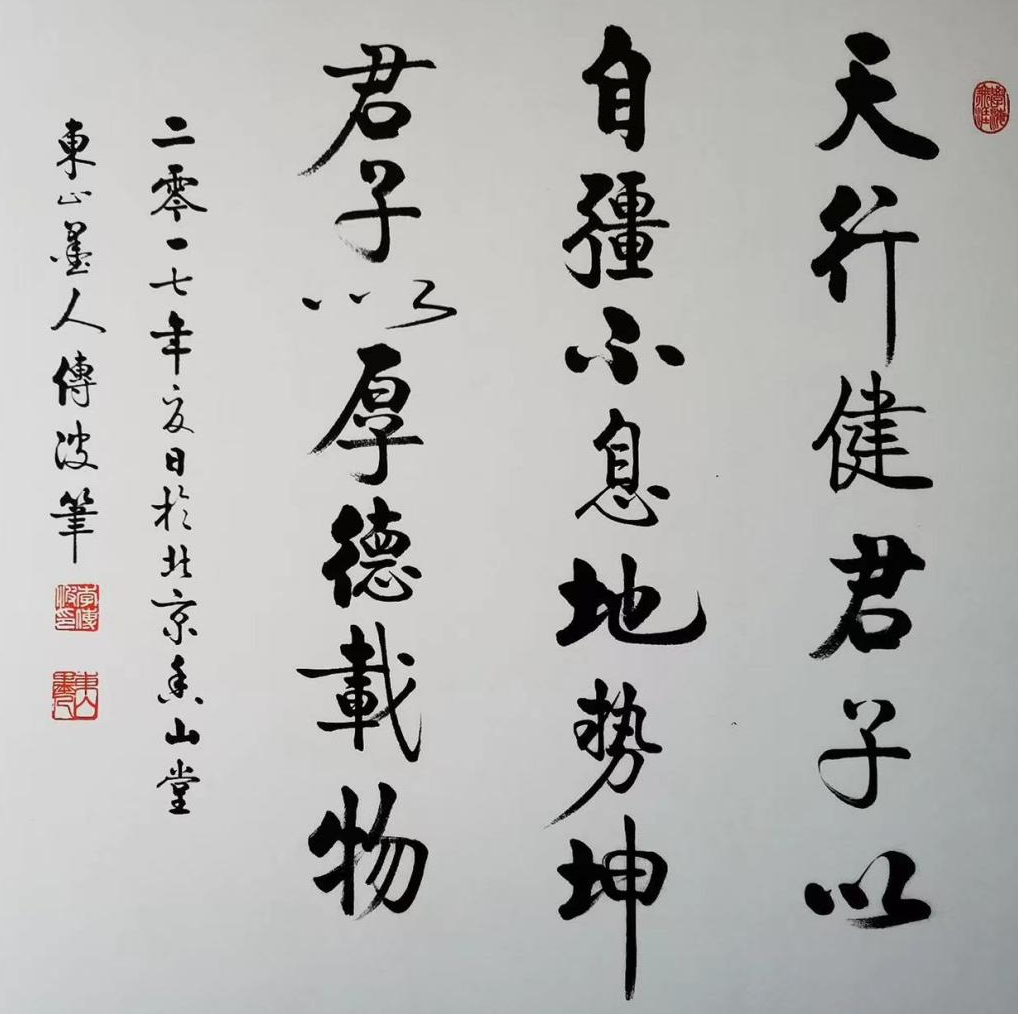 天行健君子以
自彊不息地势坤
君子以厚德載物
二零一七年夏日於北京香山堂
東山墨人傳波筆